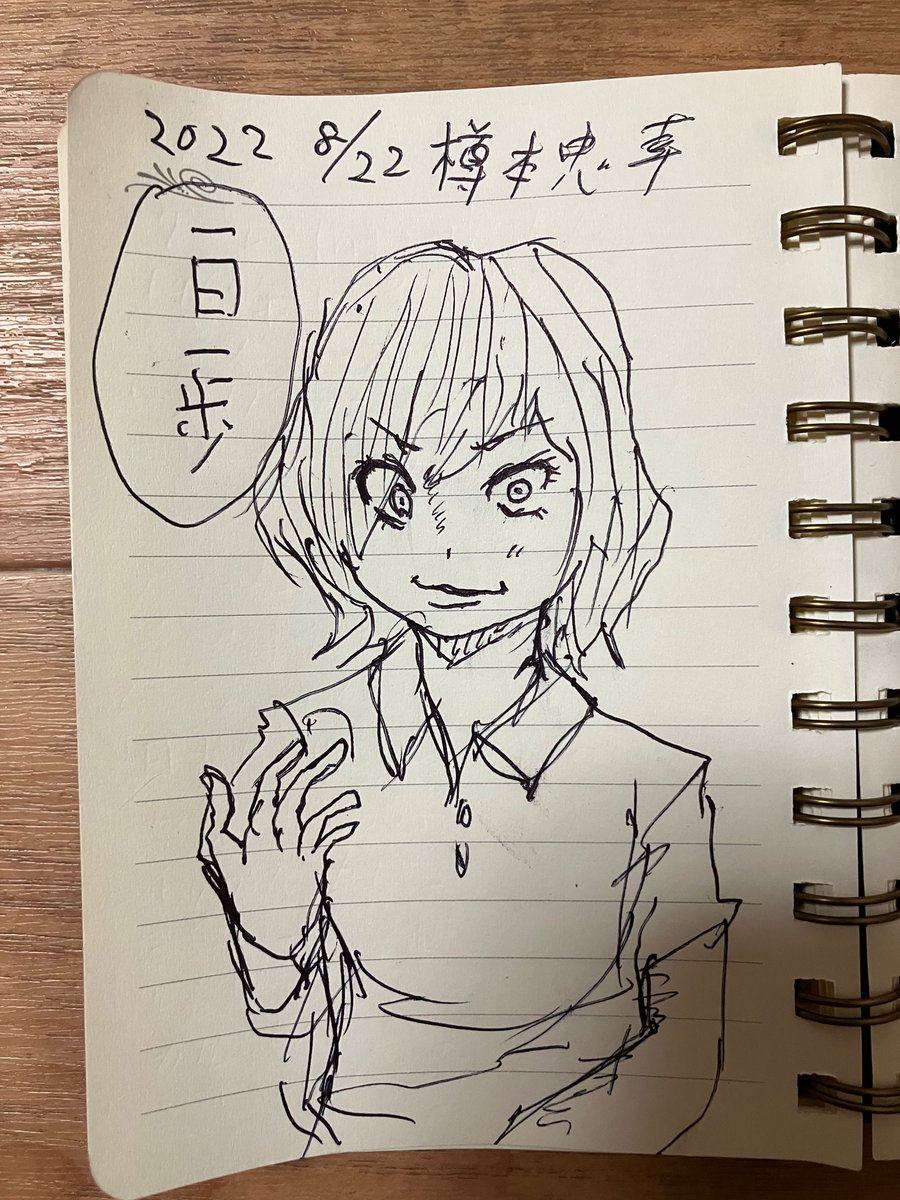 2022 8/22 樽本
一日一歩